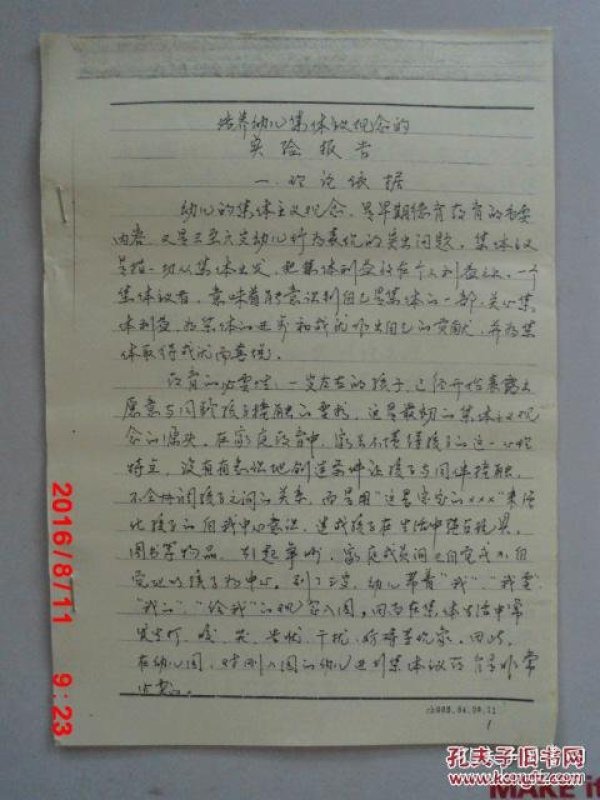 培养幼儿集体主义观念的
实验报告
一、理论依据
幼儿的集体主义观念,是早期德育教育的重要
内容,又是三至六岁幼儿行为表现的突出问题。集体主义
是指一切从集体出发,把集体利益放在个人利益之上,一个
集体主义者,意味着能意识到自己是集体的一部,关心集
体利益,为集体的进步和成就作出自己的贡献,并为集
体取得成就而喜悦。
教育的必要性:一岁左右的孩子,已经开始表露出
愿意与同龄孩子接触的要求,这是最初的集体主义观
念的萌芽。在家庭教育中,家长不懂得孩子的这一心理
特点,没有有意识地创造条件让孩子与同伴接触,
不会协调孩子之间的关系,而是用“这是宝宝的×××”来强
化孩子的自我中心意识,造成孩子在生活中强占玩具、
图书等物品,引起争吵,家庭成员间也自觉或不自
觉地以孩子为中心。到了三岁,幼儿带着“我”、“我要”
“我的”、“给我”的观念入园,因而在集体生活中常
发生打、咬、哭、告状、干扰、好持等现象。因此,
在幼儿园,对刚入园的幼儿进行集体主义教育是非常
必要的。
1
2016/8/11 9:23
孔夫子旧书网
www.kongfz.com
MAKE it